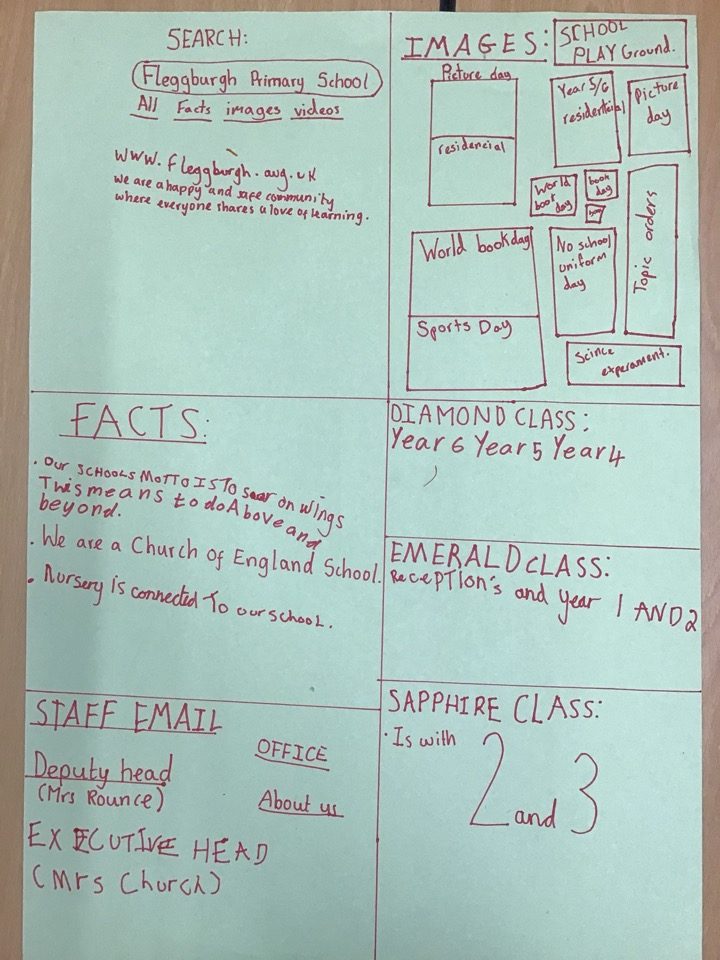 SEARCH:
Fleggburgh Primary School
All Facts images videos
www.fleggburgh.awg.uk
we are a happy and safe community
where everyone shares a love of learning.
IMAGES:
SCHOOL
PLAY Ground.
Picture day
residencial
Year 5/6
residential
Picture
day
World
book
day
book
day
Topic orders
World bookday
Sports Day
No school
uniform
day
Scince
experament.
FACTS:
. Our SCHOOLS MOTTO IS TO soar on wings
This means to do Above and
beyond.
. We are a Church of England School.
. Nursery is connected To our school.
DIAMOND CLASS:
Year 6 Year 5 Year 4
EMERALD CLASS:
RecePTION's and year 1 AND 2
STAFF EMAIL
Deputy head
(Mrs Rounce)
EXECUTIVE HEAD
(Mrs Church)
OFFICE
About us
SAPPHIRE CLASS:
· Is with 2 and 3